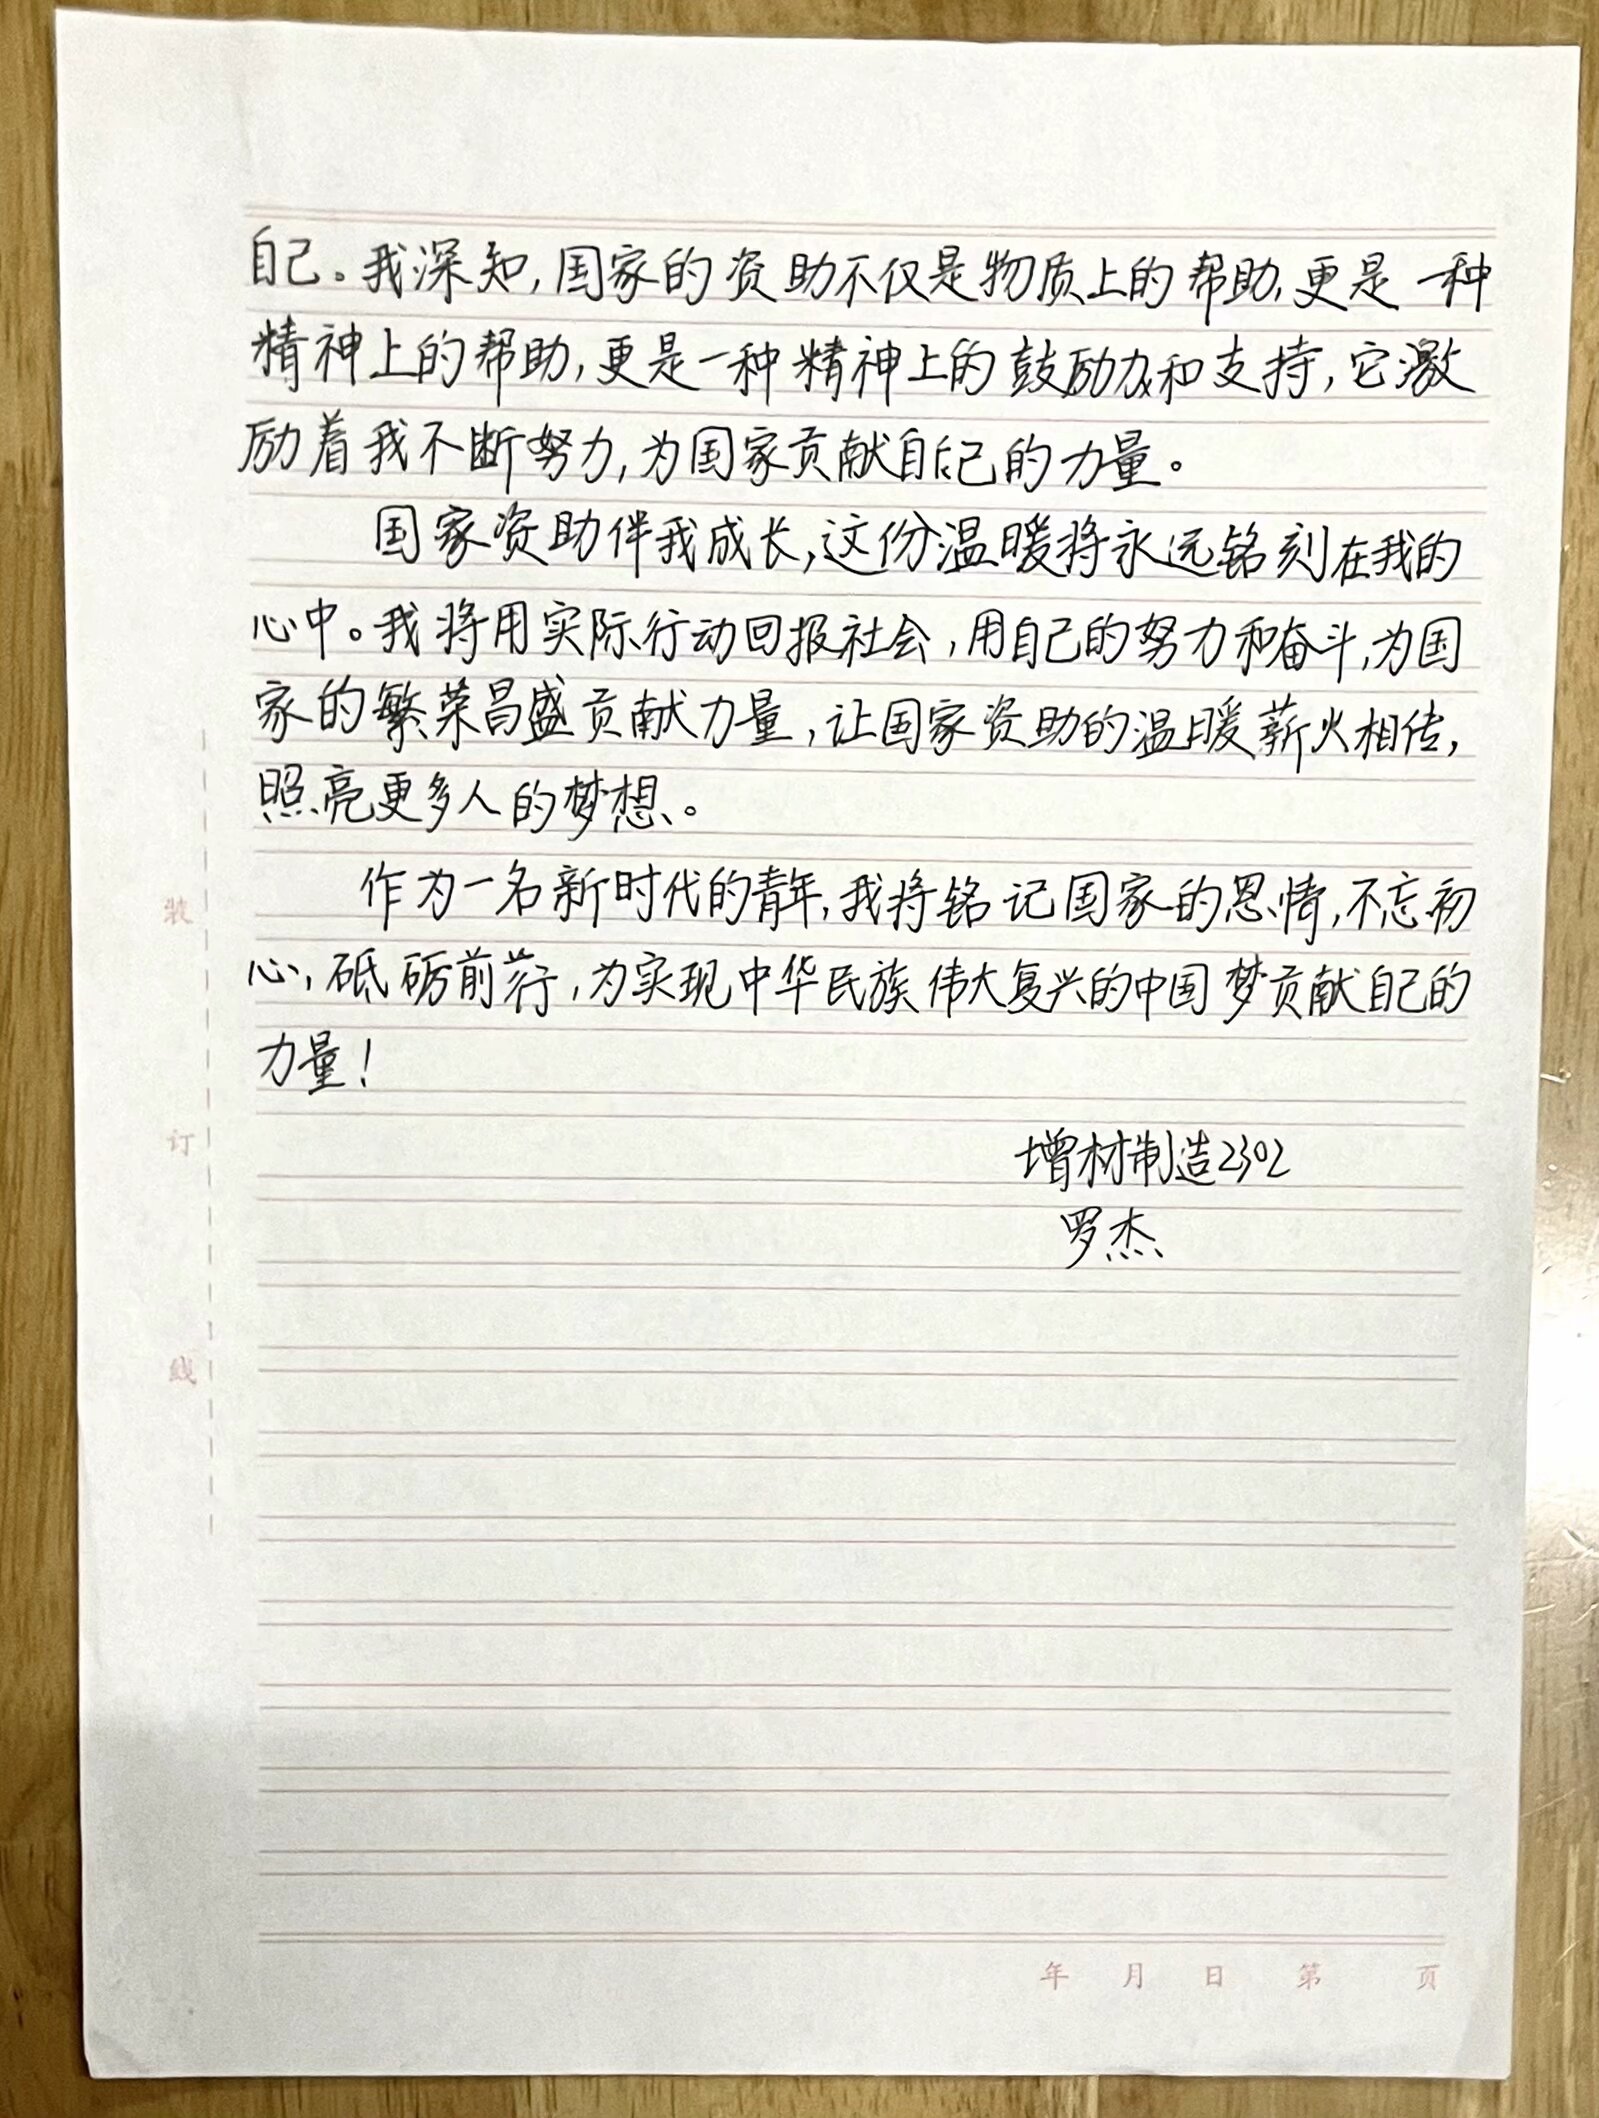 自己。我深知,国家的资助不仅是物质上的帮助,更是一种
精神上的帮助,更是一种精神上的鼓励和支持,它激
励着我不断努力,为国家贡献自己的力量。
国家资助伴我成长,这份温暖将永远铭刻在我的
心中。我将用实际行动回报社会,用自己的努力和奋斗,为国
家的繁荣昌盛贡献力量,让国家资助的温暖薪火相传,
照亮更多人的梦想。
作为一名新时代的青年,我将铭记国家的恩情,不忘初
心,砥砺前行,为实现中华民族伟大复兴的中国梦贡献自己的
力量!
增材制造2302
罗杰
装
订
线
年 月 日 第 页